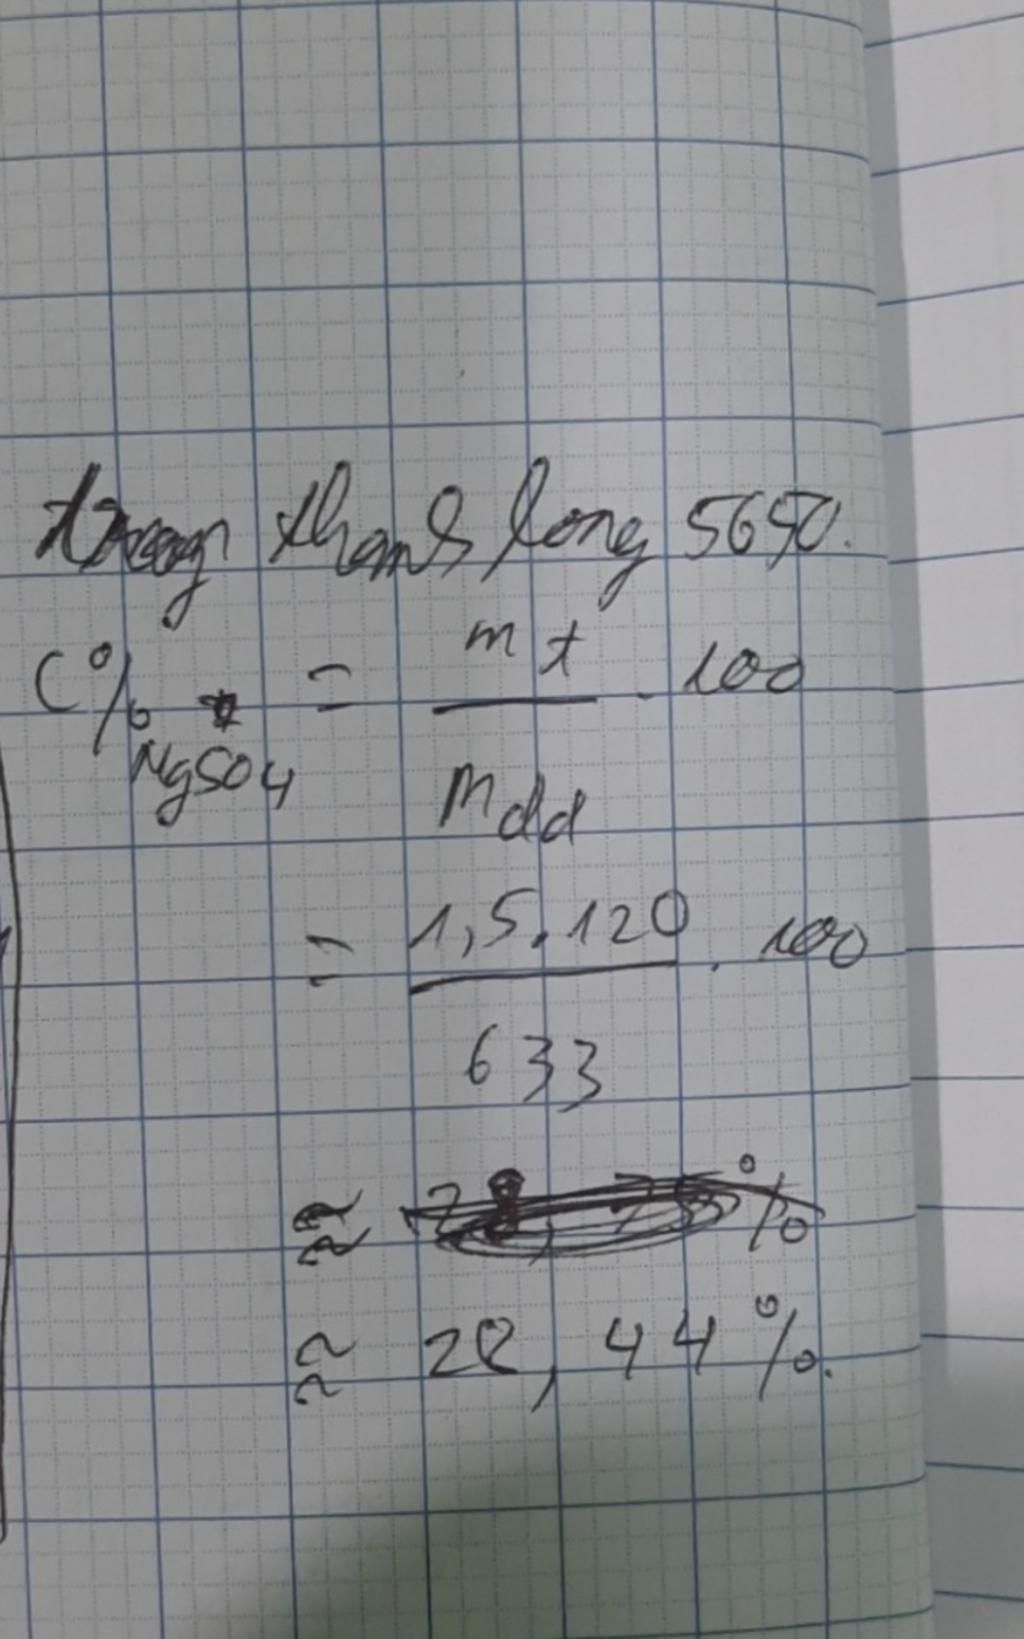 trang thanh long 5650.
C% MgSO4 = mt / mdd . 100
= 1,5.120 / 633 . 100
≈ %
≈ 28,44%.